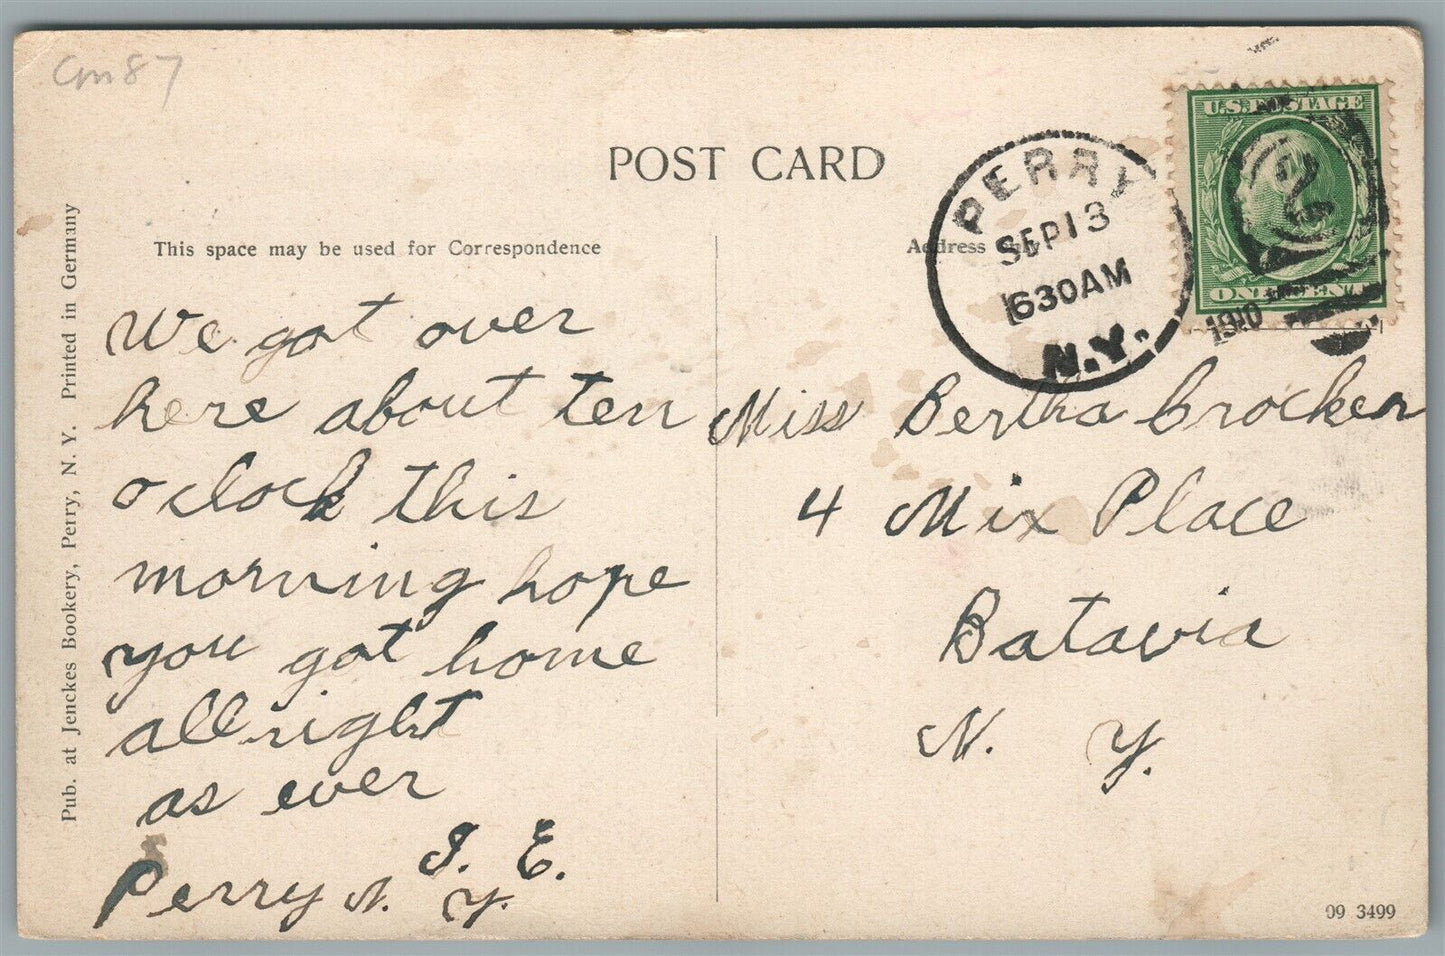 Cm87
POST CARD
This space may be used for Correspondence
Address Only
Pub. at Jenckes Bookery, Perry, N. Y. Printed in Germany
U.S. POSTAGE
ONE CENT
PERRY
SEP 13
630 AM
1910
N.Y.
We got over
here about ten
o clock this
morning hope
you got home
all right
as ever
E.
Perry N. Y.
Miss Bertha Brocker
4 Mix Place
Batavia
N. Y.
09 3499